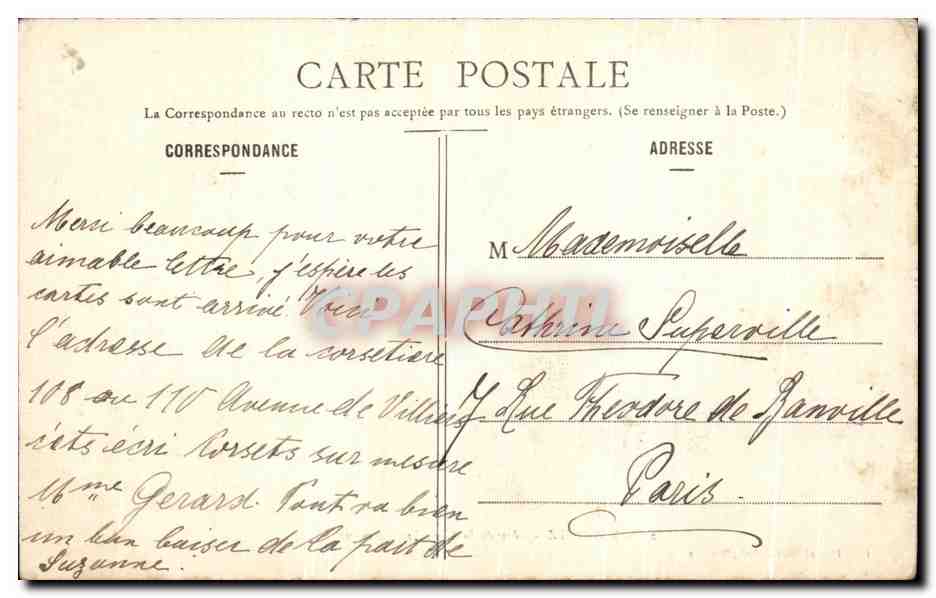 CARTE POSTALE
La Correspondance au recto n'est pas acceptée par tous les pays étrangers. (Se renseigner à la Poste.)
CORRESPONDANCE
Merci beaucoup pour votre
aimable lettre, j'espère les
cartes sont arrivé. Voici
l'adresse de la corsetiere
108 ou 110 Avenue de Villiers
écri Corsets sur mesure
Mme Gerard. Tout va bien
un bon baiser de la part de
Suzanne.
ADRESSE
M Mademoiselle
Cathrine Superville
7 Rue Theodore de Banville
Paris.
CPAPHIL